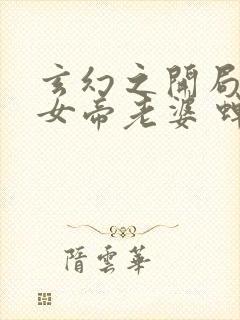 玄幻之開局
女帝老婆
隋雲華